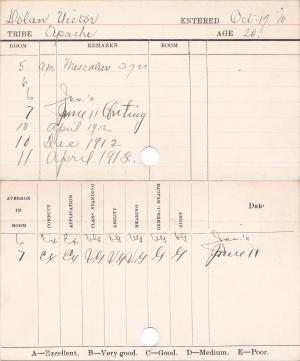 Dolan Victor ENTERED Oct. 19 '10
TRIBE Apache AGE 20
ROOM REMARKS ROOM
5 am Mescalero 3 yrs
6
6 Jan. '11
7 June 11 Outing
10 April 1912
10 Dec 1912
11 April 1913.
AVERAGE IN ROOM CONDUCT APPLICATION CLASS STANDING ABILITY HEARING GENERAL HEALTH SIGHT Date
6 Ex Ex VG VG VG VG VG Jan. '11
7 Ex G VG VG VG G G June 11
A—Excellent. B—Very good. C—Good. D—Medium. E—Poor.